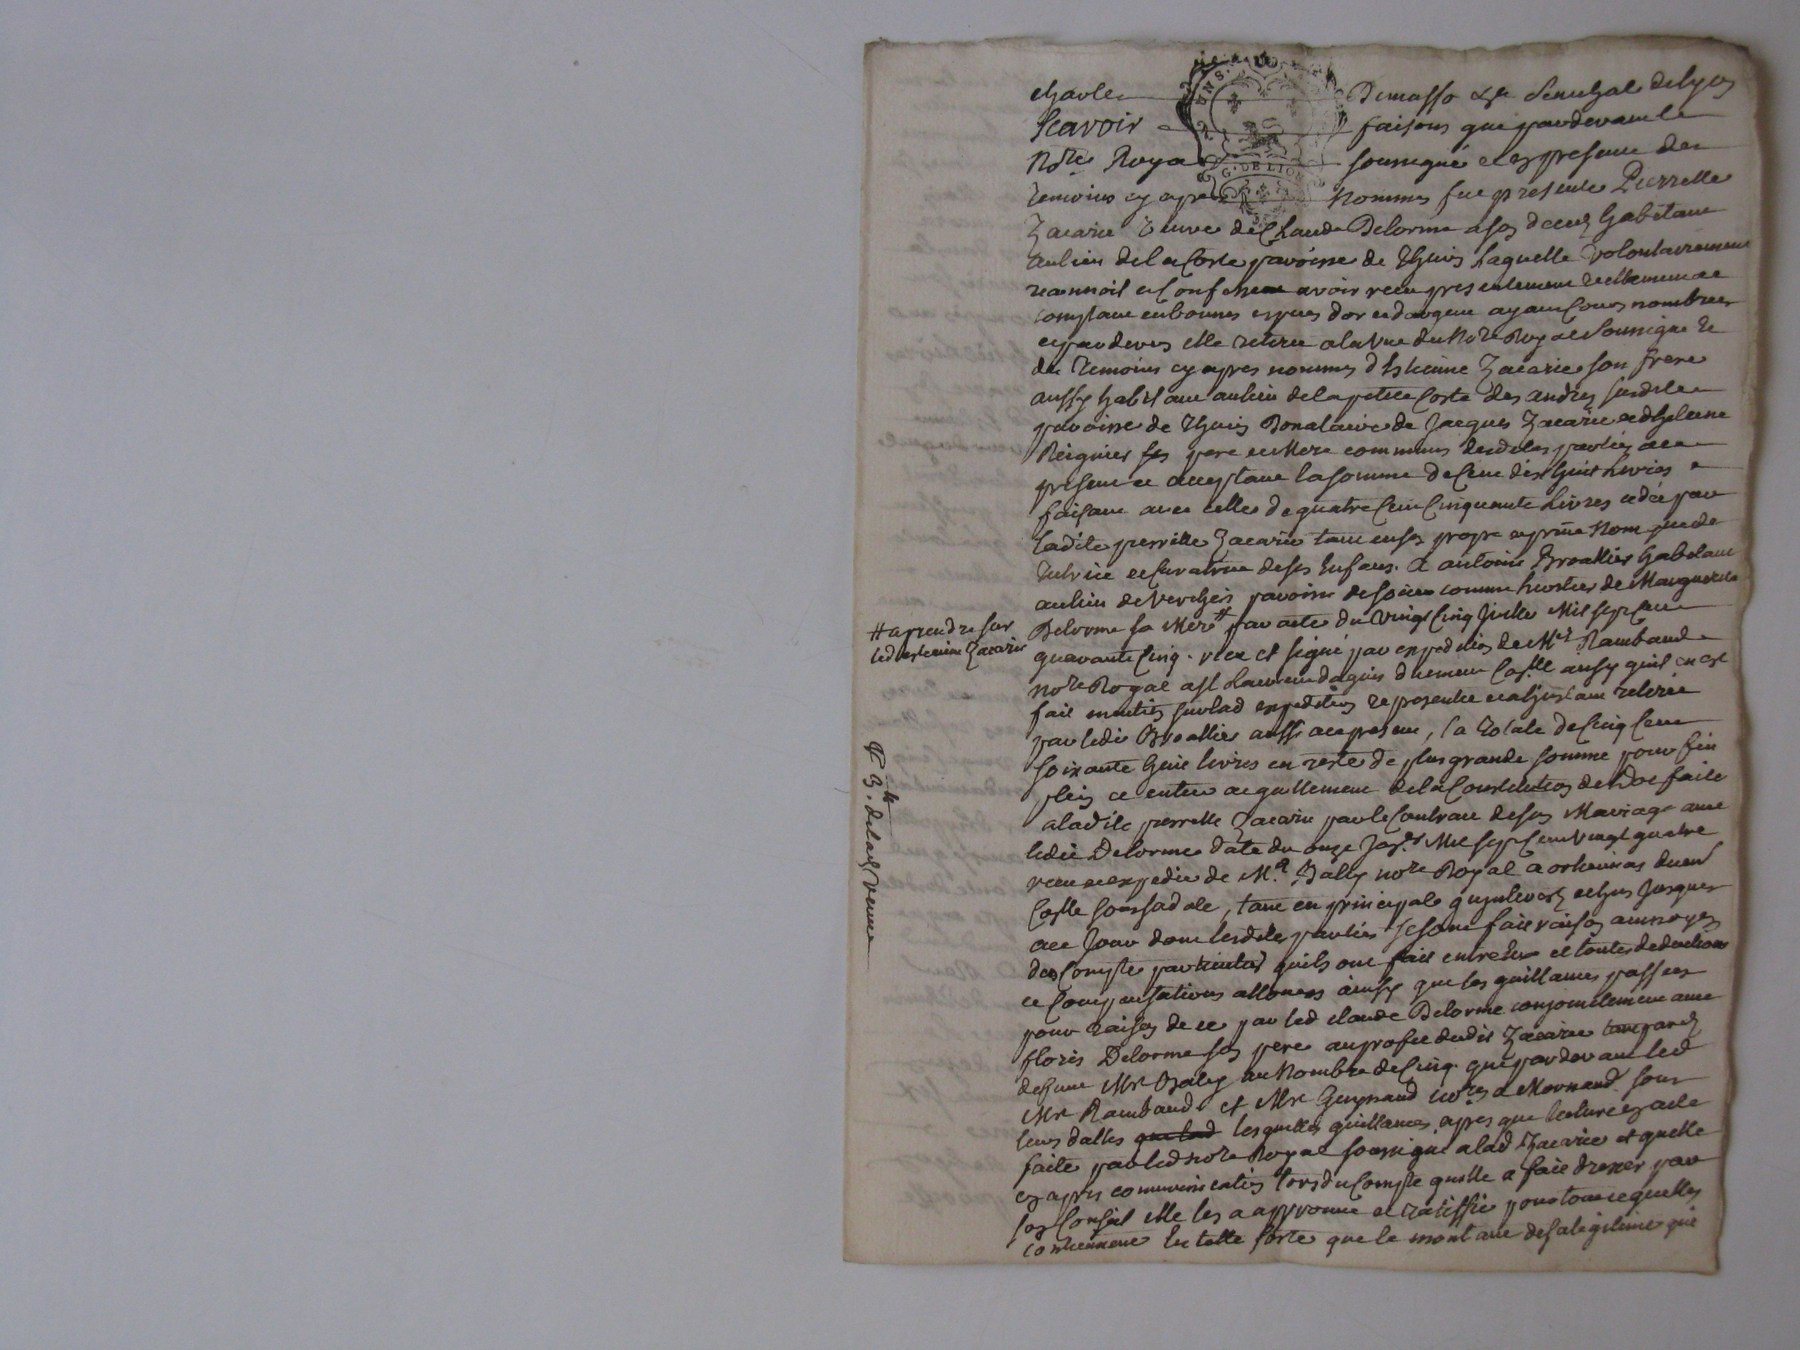 charles Demasso &c Senechal de Lyon
Scavoir faisons que pardevant le
Nore Royal soussigné et en presence des
temoins cy apres Nommes fut presente Pierrette
Zacarie veuve de Claude Delorme a son deces habitant
au lieu de la Coste paroisse de Thuis Laquelle volontairement
reconnoit et Confesse avoir receu presentement reellement et
comptant en bonnes especes d'or et d'argent ayant Cours nombrees
et pardevers elle retiree a la vue du Nore Royal Soussigne et
des temoins cy apres nommes d'Estienne Zacarie son frere
aussy habitant au lieu de la petite Coste des andres susdite
paroisse de Thuis Donataire de Jacques Zacarie et d'helene
Reignier ses pere et Mere communs desdites parties a ce
present et acceptant la somme de Cent dix huit Livres
faisant avec celle de quatre Cent Cinquante Livres cedée par
ladite perrette Zacarie tant en son propre et privé Nom que de
tutrice et Curatrice de ses Enfans a antoine Broallier habitant
au lieu de Verchers paroisse de comme heritier de Marguerite
Delorme sa Mere # par acte du vingt Cinq Mil sept Cent
quarante Cinq. receu et signé par expedition de Mre Rambaud
nore Royal a St Laurent aussy quil en est
fait mention sur lad expedition representée et a l'instant retirée
par ledit Broallier aussi a ce present, la totale de Cinq Cent
soixante huit livres en reste de plus grande somme pour fin
plein et entier acquittement de la Constitution de Dot faite
a ladite perrette Zacarie par le Contract de son Mariage avec
ledit Delorme date du onze Mil sept Cent vingt quatre
receu et expedié de Me Bally nore Royal a
Coste sous sa date, tant en principale qu'interets echus jusques
a ce Jour dont lesdites parties se sont fait raison au moyen
des Compte particulier quils ont fait entre eux et toutes deductions
et Compensations allouees ainsy que les quittances passees
pour raison de ce par led claude Delorme conjointement avec
floris Delorme son pere au profit dudit Zacarie tant pard
defunt Mre Bally au Nombre de Cinq que pardevant led
Mre Rambaud et Mre Guynaud nores a Mornand sous
leurs dattes lesquelles quittances apres que lecture exacte
faite par led nore Royal soussigné a lad Zacarie et quelle
en a pris communication lors du Compte quelle a fait dresser par
son Conseil elle les a approuvé et ratiffié pour tout ce quelles
contiennent en telle sorte que le montant de sa legitime qui
# a prendre sur
led estienne Zacarie